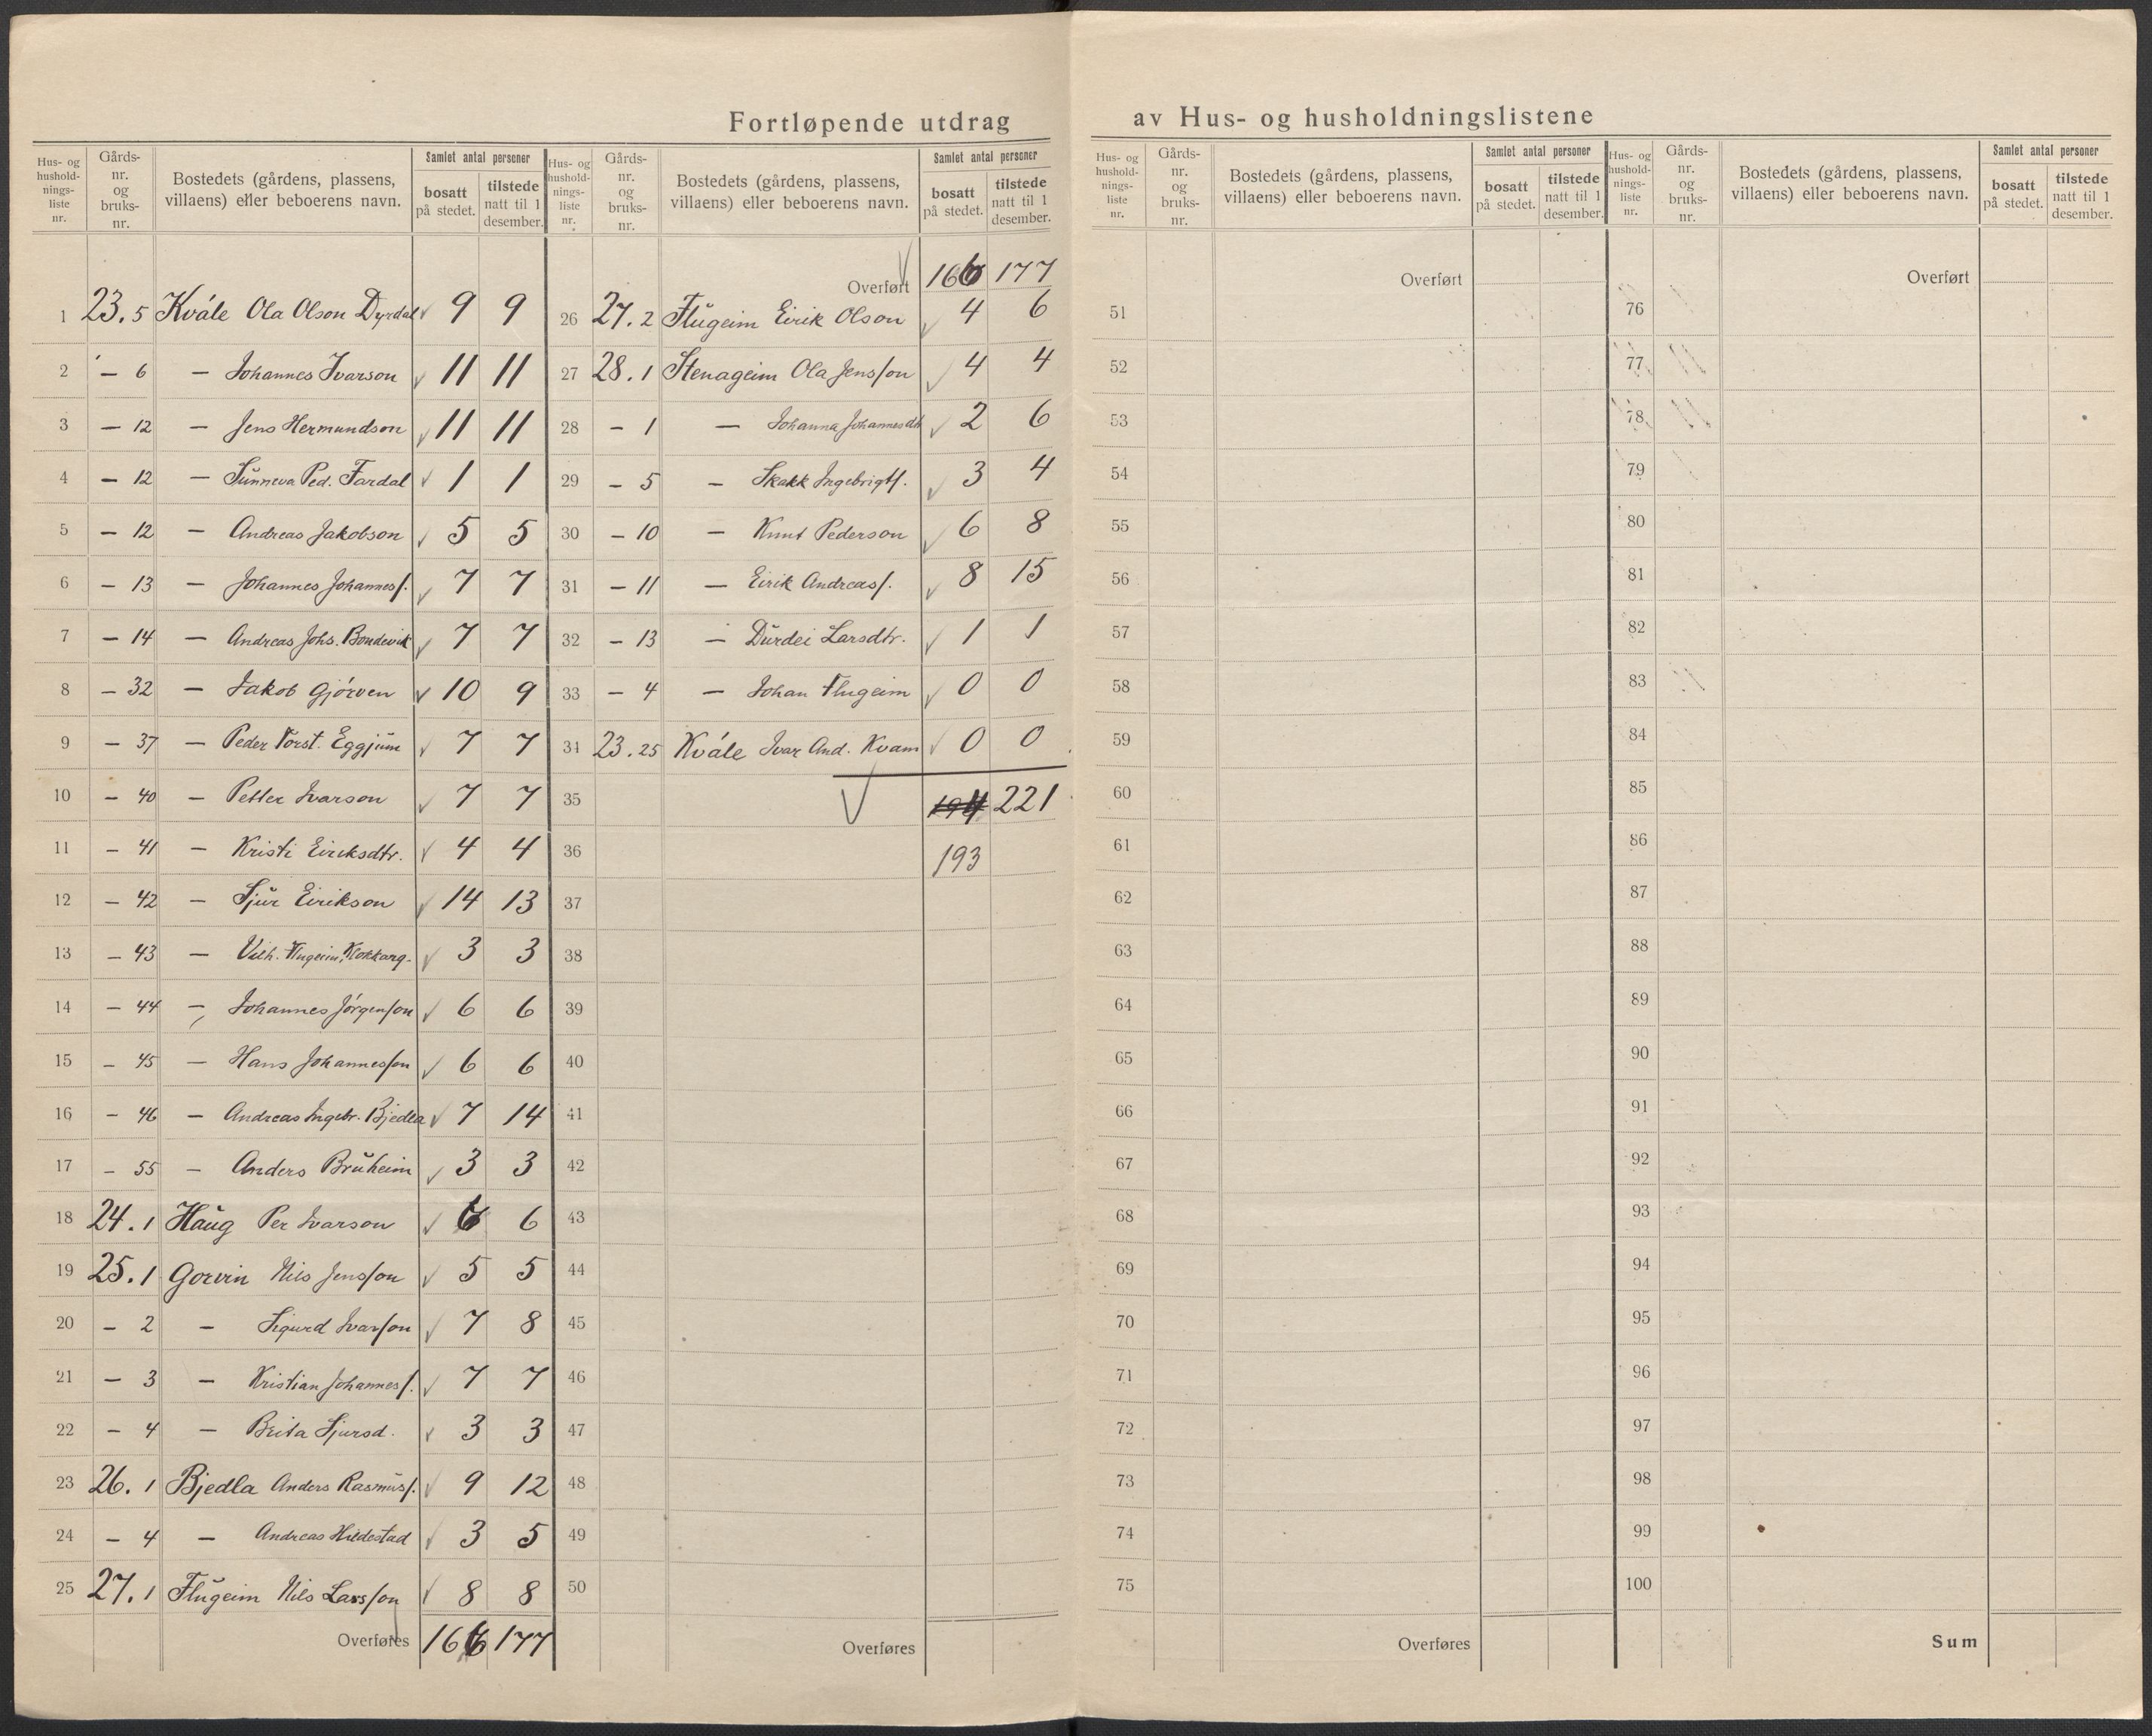 Fortløpende utdrag av Hus- og husholdningslistene
Hus- og husholdnings-liste nr. | Gårds-nr. og bruks-nr. | Bostedets (gårdens, plassens, villaens) eller beboerens navn. | Samlet antal personer | bosatt på stedet. | tilstede natt til 1 desember.
1 23.5 Kvåle Ola Olson Dyrdal 9 9
2 — 6 — Johannes Ivarson 11 11
3 — 12 — Jens Hermundson 11 11
4 — 12 — Sunneva Ped. Fardal 1 1
5 — 12 — Andreas Jakobson 5 5
6 — 13 — Johannes Johanness. 7 7
7 — 14 — Andreas Johs. Bondevik 7 7
8 — 32 — Jakob Gjörven 10 9
9 — 37 — Peder Torst. Eggjum 7 7
10 — 40 — Petter Ivarson 7 7
11 — 41 — Kristi Eiriksdtr. 4 4
12 — 42 — Sjur Eirikson 14 13
13 — 43 — Vilh. Flugeim, Klokkarg. 3 3
14 — 44 — Johannes Jörgenson 6 6
15 — 45 — Hans Johannesson 6 6
16 — 46 — Andreas Ingebr. Bjedla 7 14
17 — 55 — Anders Bruheim 3 3
18 24.1 Haug Per Ivarson 6 6
19 25.1 Gorvin Nils Jensson 5 5
20 — 2 — Sigurd Ivarson 7 8
21 — 3 — Kristian Johanness. 7 7
22 — 4 — Brita Sjursd. 3 3
23 26.1 Bjedla Anders Rasmuss. 9 12
24 — 4 — Andreas Hildestad 3 5
25 27.1 Flugeim Nils Larsson 8 8
Overføres 166 177
Hus- og husholdnings-liste nr. | Gårds-nr. og bruks-nr. | Bostedets (gårdens, plassens, villaens) eller beboerens navn. | Samlet antal personer | bosatt på stedet. | tilstede natt til 1 desember.
Overført 166 177
26 27.2 Flugeim Eirik Olson 4 6
27 28.1 Stenageim Ola Jensson 4 4
28 — 1 — Johanna Johannesdtr 2 6
29 — 5 — Skakk Ingebrigts. 3 4
30 — 10 — Knut Pederson 6 8
31 — 11 — Eirik Andreass. 8 15
32 — 13 — Durdei Larsdtr. 1 1
33 — 4 — Johan Flugeim 0 0
34 23.25 Kvåle Ivar And. Kvam 0 0
35 194 221
36 193
37
38
39
40
41
42
43
44
45
46
47
48
49
50
Overføres
Hus- og husholdnings-liste nr. | Gårds-nr. og bruks-nr. | Bostedets (gårdens, plassens, villaens) eller beboerens navn. | Samlet antal personer | bosatt på stedet. | tilstede natt til 1 desember.
Overført
51
52
53
54
55
56
57
58
59
60
61
62
63
64
65
66
67
68
69
70
71
72
73
74
75
Overføres
Hus- og husholdnings-liste nr. | Gårds-nr. og bruks-nr. | Bostedets (gårdens, plassens, villaens) eller beboerens navn. | Samlet antal personer | bosatt på stedet. | tilstede natt til 1 desember.
Overført
76
77
78
79
80
81
82
83
84
85
86
87
88
89
90
91
92
93
94
95
96
97
98
99
100
Sum